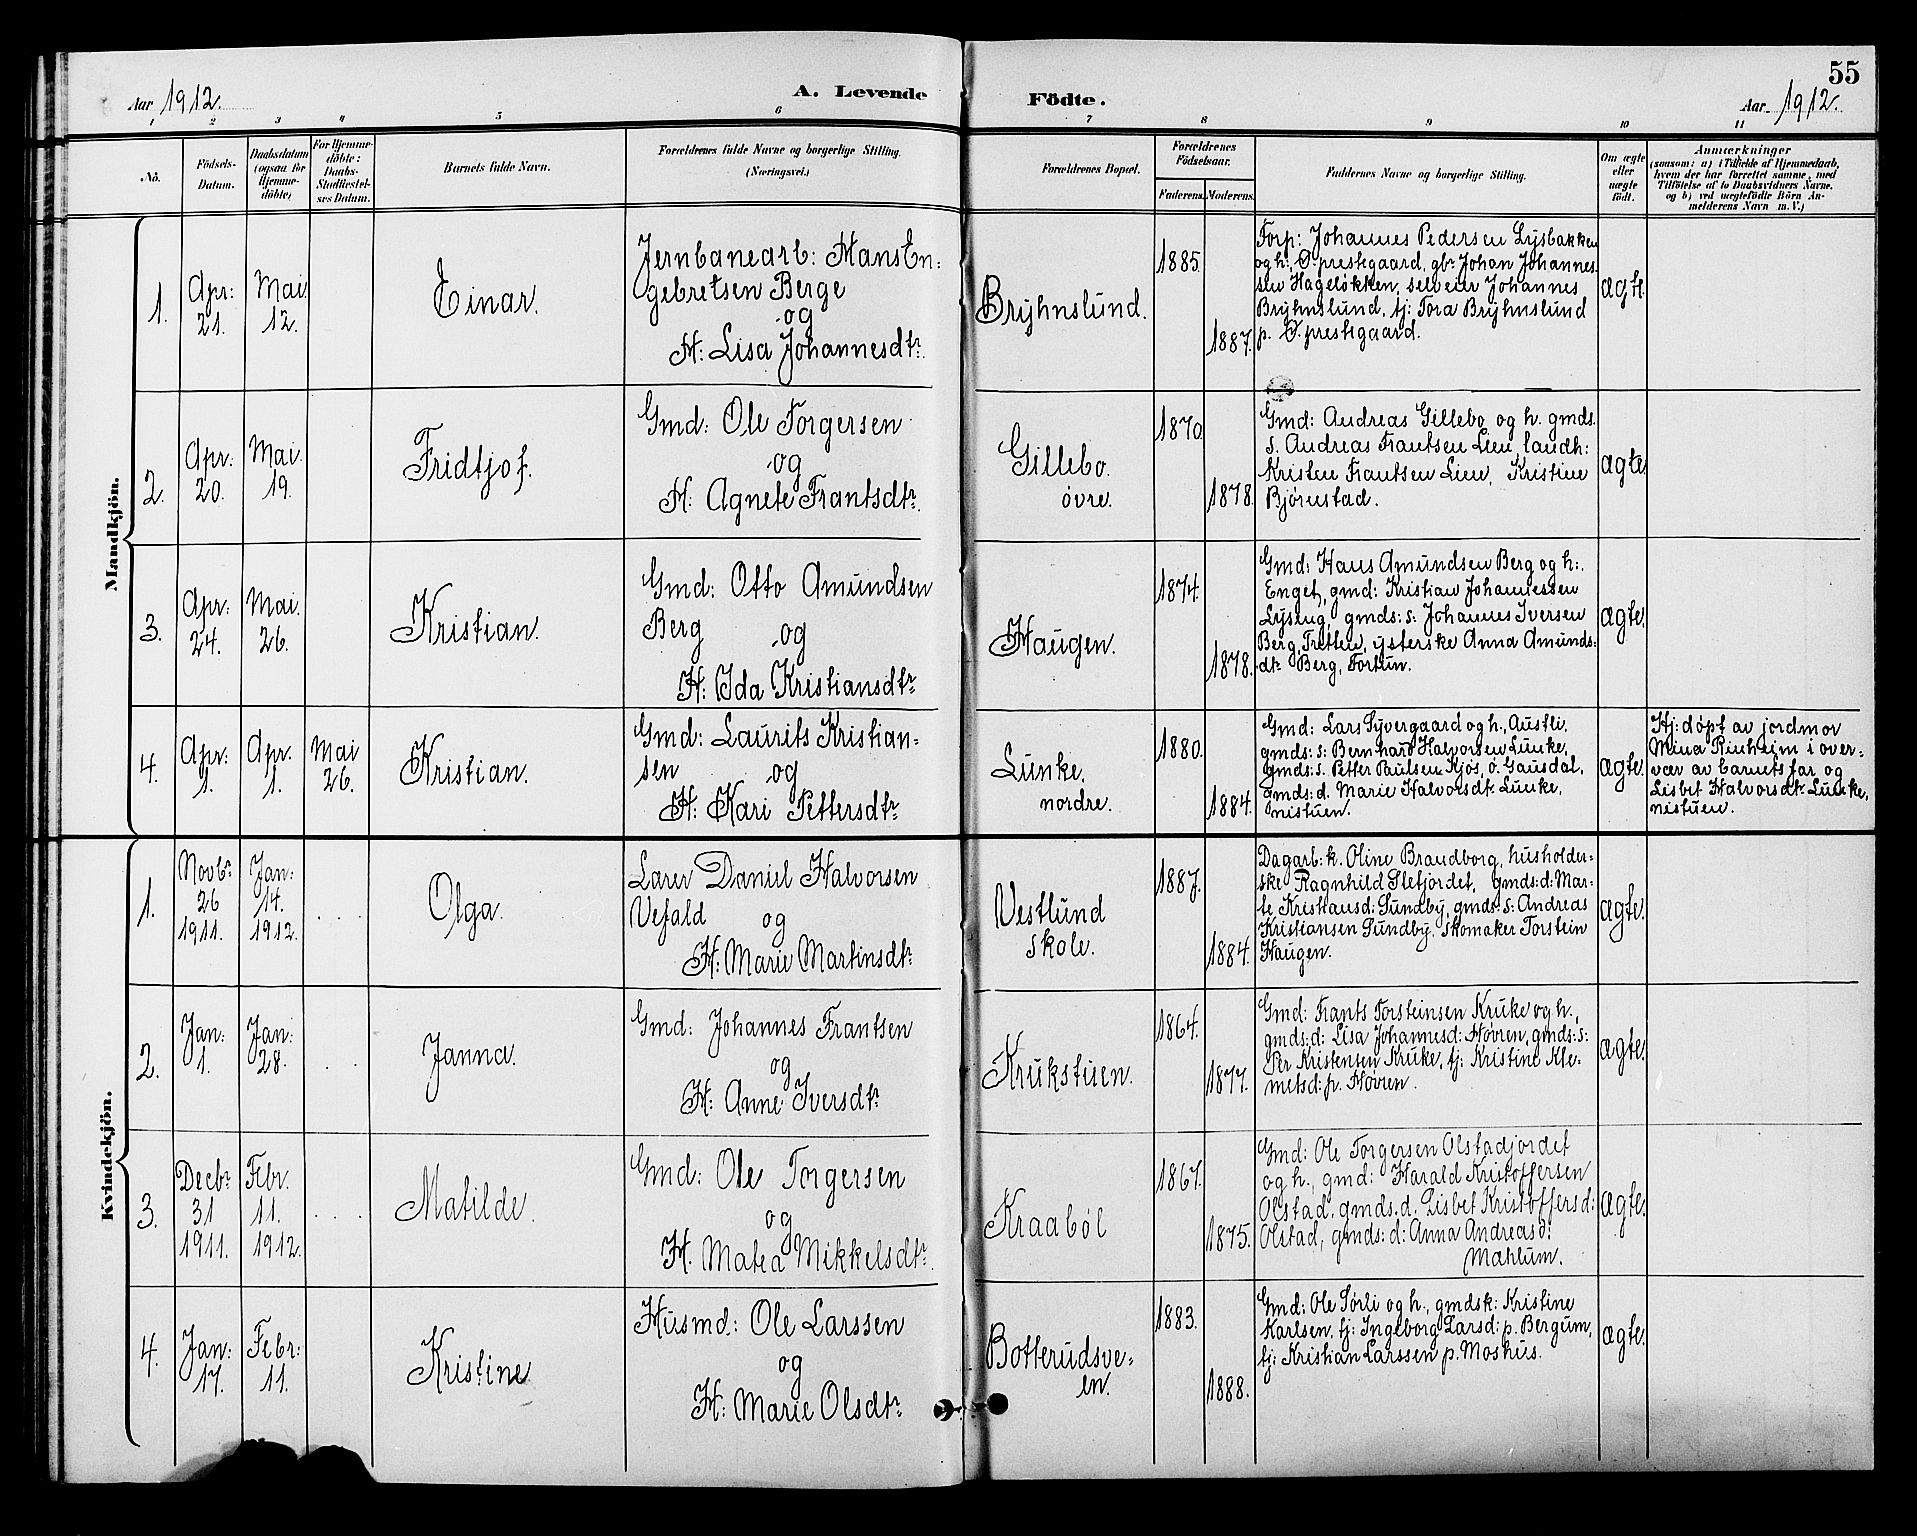 55
Aar 1912. A. Levende Födte. Aar 1912.
1 2 3 4 5 6 7 8 9 10 11
No.
Födsels-
Datum.
Daabsdatum
(ogsaa for
Hjemme-
döbte)
For Hjemme-
döbte:
Daabs-
Stadfæstel-
ses Datum.
Barnets fulde Navn.
Forældrenes fulde Navne og borgerlige Stilling.
(Næringsvei.)
Forældrenes Bopæl.
Forældrenes
Födselsaar.
Faderens. Moderens.
Faddernes Navne og borgerlige Stilling.
Om ægte
eller
uægte
født.
Anmærkninger
(saasom: a) i Tilfælde af Hjemmedaab,
hvem der har forrettet samme, med
Tilföielse af to Daabsvidners Navne,
og b) ved uægtefödte Börn An-
melderens Navn m. V.)
Mandkjön.
1.
Apr:
21.
Mai
12.
Einar.
Jernbanearb: Hans En-
gebretsen Berge
og
H: Lisa Johannesdtr.
Bryhnslund.
1885.
1887.
Forp: Johannes Pedersen Lysbakken
og h:, Ø. prestegaard, gbr Johan Johannes-
sen Hageløkken, selveier Johannes
Bryhnslund, tj: Tora Bryhnslund
p. Ø. prestegaard.
ægte.
2.
Apr:
20.
Mai.
19.
Fridtjof.
Gmd: Ole Torgersen
og
H: Agnete Frantsdtr.
Gillebo.
øvre.
1870
1878.
Gmd: Andreas Gillebo og h. gmds.
s. Andreas Frantsen Lien, landh:
Kristen Frantsen Lien, Kristine
Bjørnstad.
ægte.
3.
Apr:
24.
Mai.
26.
Kristian.
Gmd: Otto Amundsen
Berg og
H: Ida Kristiansdtr
Haugen.
1874.
1878.
Gmd: Hans Amundsen Berg og h:,
Enget, gmd: Kristian Johannessen
Lyseng, gmds: s: Johannes Iversen
Berg, Tretten, ysterske Anna Amunds-
dtr Berg, Fortun.
ægte.
4.
Apr:
1.
Apr.
1.
Mai
26.
Kristian.
Gmd: Laurits Kristian-
sen og
H. Kari Pettersdtr
Lunke,
nordre.
1880.
1884.
Gmd: Lars Syvergaard og h., Austli,
gmds: s: Bernhard Halvorsen Lunke,
gmds: s. Petter Paulsen Kjøs, ø. Gausdal,
gmds: d. Marie Halvorsdtr Lunke,
nistuen.
ægte.
Hj: døpt av jordmor
Mina Rinheim i over-
vær av barnets far og
Lisbet Halvorsdtr Lunke,
nistuen.
Kvindekjön.
1.
Novbr
26
1911.
Jan:
14.
1912.
Olga.
Lærer Daniel Halvorsen
Vefald og
H: Marie Martinsdtr
Vestlund
skole.
1887.
1884.
Dagarb: k. Oline Brandborg, husholder-
ske Ragnhild Slefjordet, gmds: d: Mar-
te Kristiansd: Sundby, gmds: s: Andreas
Kristiansen Sundby, skomaker Torstein
Haugen.
ægte.
2.
Jan:
1.
Jan:
28.
Janna.
Gmd: Johannes Frantsen
og
H: Anne Iversdtr
Krukstuen.
1864.
1877.
Gmd: Frants Torsteinsen Kruke og h.,
gmds: d: Lisa Johannesd: Høvren, gmds: s:
Per Kristensen Kruke, tj: Kristine Kle-
metsd: p. Høvren.
ægte.
3.
Decbr
31
1911.
Febr.
11.
1912.
Matilde.
Gmd: Ole Torgersen
og
H. Matea Mikkelsdtr.
Kraabøl
1867.
1875.
Gmd: Ole Torgersen Olstadjordet
og h., gmd: Harald Kristoffersen
Olstad, gmds. d. Lisbet Kristoffersd:
Olstad, gmds: d: Anna Andreasd:
Mahlum.
ægte.
4.
Jan:
17.
Febr:
11.
Kristine
Husmd: Ole Larssen
og
H: Marie Olsdtr
Botterudsve-
en.
1883.
1888.
Gmd: Ole Sørli og h., gmdsk: Kristine
Karlsen, tj: Ingeborg Larsd: p. Bergum,
tj: Kristian Larssen p. Moshus.
ægte.